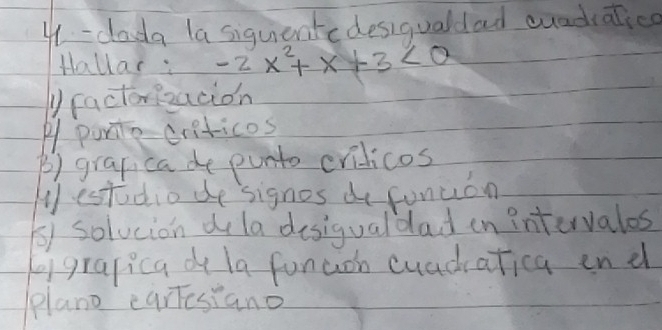 4-dada la siguiente desigualdad cuadratica
Hallar: -2x²+x+3<0
1) factorización
2) punto criticos
3) grafica de punto criticos
4) estudio de signos de función
5) solución de la desigualdad en intervalos
6) grafica de la función cuadratica en el
plano cartesiano